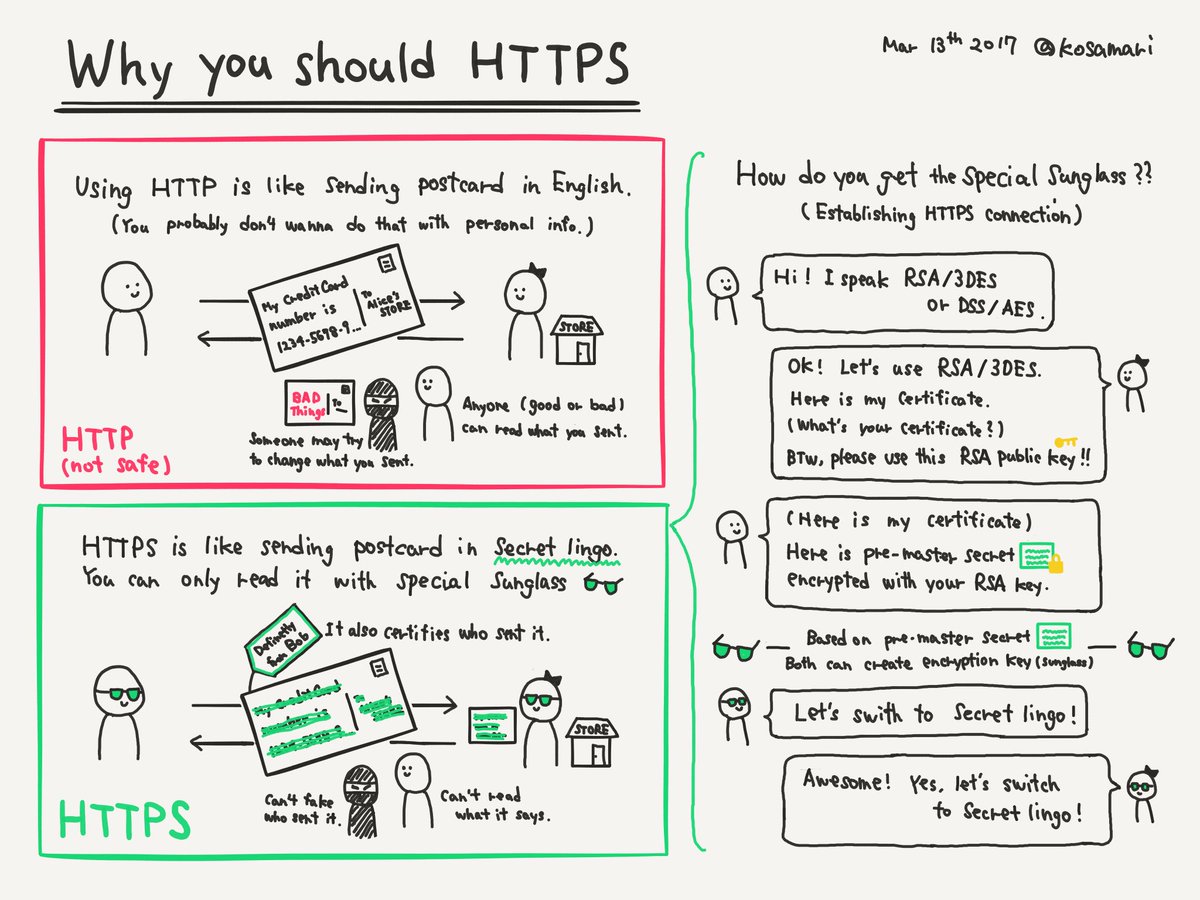 Why you should HTTPS
Mar 13th 2017 @kosamari
Using HTTP is like sending postcard in English.
(You probably don't wanna do that with personal info.)
My Credit Card
number is
1234-5698-9...
To
Alice's
STORE
STORE
BAD
Things
To
Someone may try
to change what you sent.
Anyone (good or bad)
can read what you sent.
HTTP
(not safe)
HTTPS is like sending postcard in Secret lingo.
You can only read it with special Sunglass
Definetly
from Bob
It also certifies who sent it.
My Credit Card
number is
STORE
Can't fake
who sent it.
Can't read
what it says.
HTTPS
How do you get the Special Sunglass??
(Establishing HTTPS connection)
Hi! I speak RSA/3DES
or DSS/AES.
Ok! Let's use RSA/3DES.
Here is my certificate.
(What's your certificate?)
BTW, please use this RSA public key!!
(Here is my certificate)
Here is pre-master secret
encrypted with your RSA key.
Based on pre-master secret
Both can create encryption key (sunglass)
Let's swith to Secret lingo!
Awesome! Yes, let's switch
to Secret lingo!